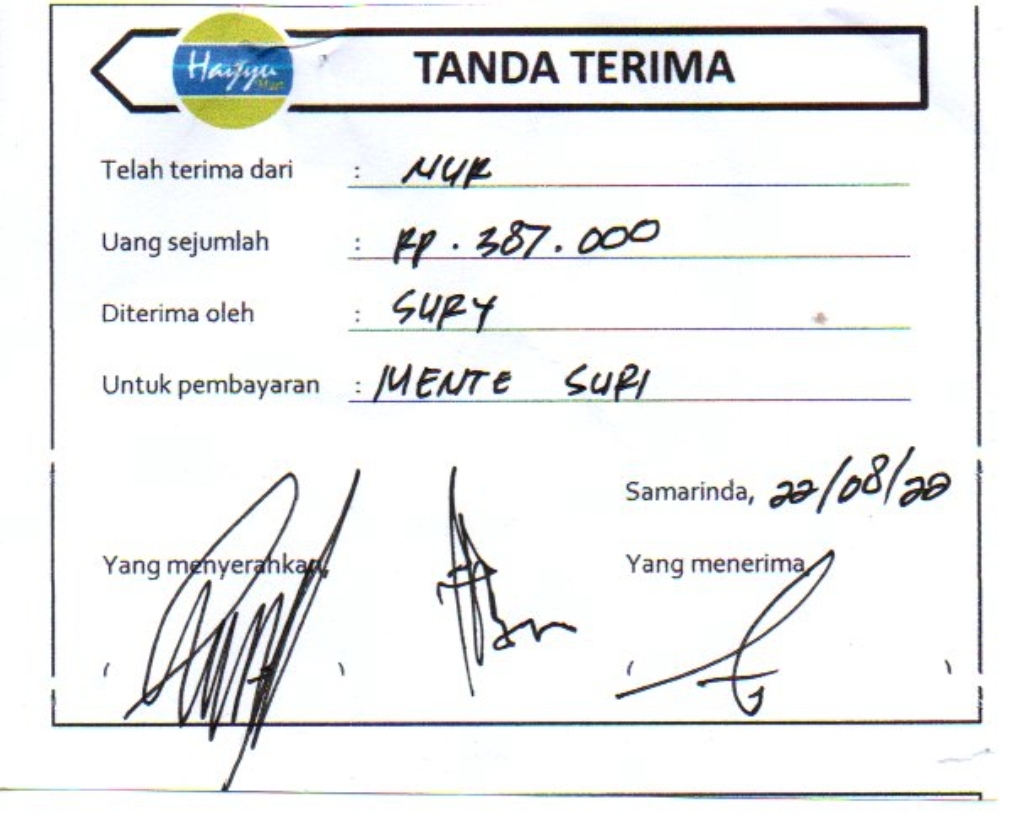 Hayyu Mart
TANDA TERIMA
Telah terima dari : NUR
Uang sejumlah : RP. 387.000
Diterima oleh : SURY
Untuk pembayaran : MENTE SURI
Samarinda, 22/08/22
Yang menyerahkan,
Yang menerima,
( ) ( )